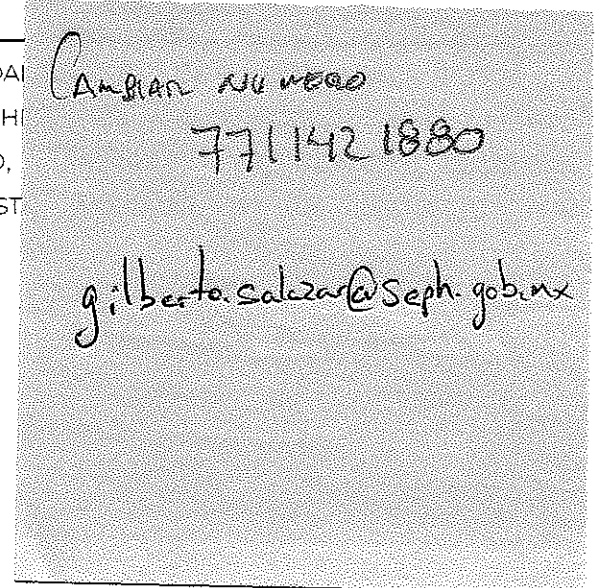 DA
HI
O,
ST
CAMBIAR NUMERO
7711421880
gilberto.salazar@seph.gob.mx